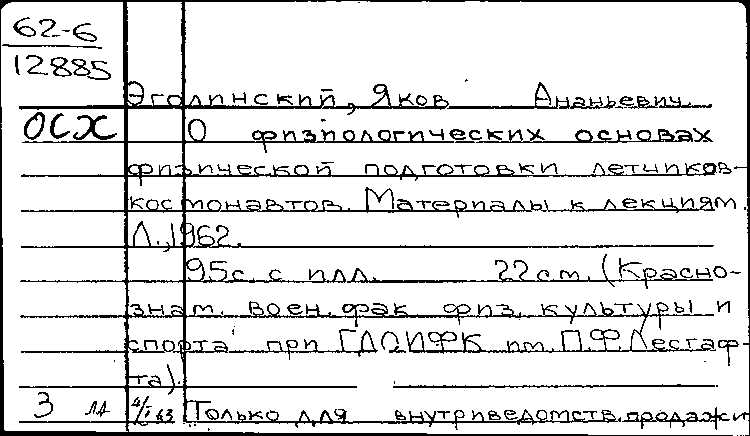 62-6
12885
Эголинский, Яков Ананьевич.
ОСХ О физиологических основах
физической подготовки летчиков-
космонавтов. Материалы к лекциям.
Л., 1962.
95с. с илл. 22см. (Красно-
знам. воен. фак физ. культуры и
спорта при ГДОИФК им. П.Ф.Лесгаф-
та).
3 4/I 63 Только для внутриведомств. продажи